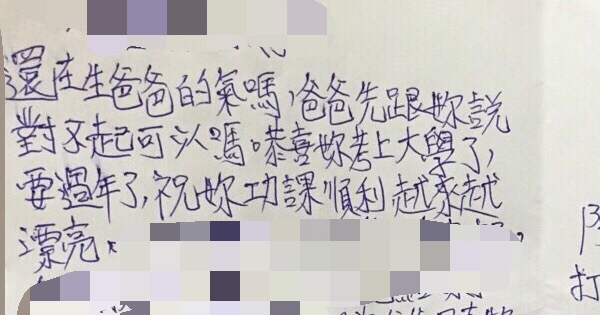 還在生爸爸的氣嗎,爸爸先跟妳說
對不起可以嗎。恭喜妳考上大學了,
要過年了,祝妳功課順利越來越
漂亮。
打